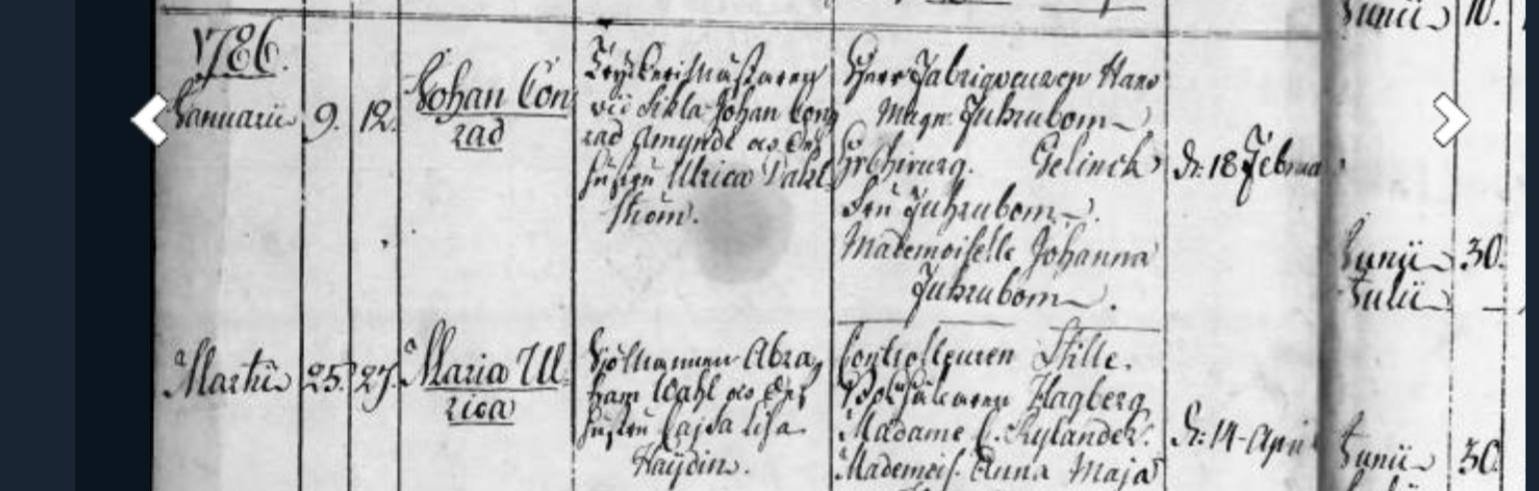 1786.
Januarii 9. 12. Johan Con
rad
Tryckerimästaren
vid Sikla Johan Con
rad Amyndt och des
hustru Ulrica Dahl
ström.
Herr Fabriqueuren Hans
Magn. Fuhrubom
Hr Chirurg. Gelinck
Fru Fuhrubom
Mademoiselle Johanna
Fuhrubom.
d: 18 Februa
Martii 25. 27. Maria Ul
rica
Sjötimannen Abra
ham Wahl och des
hustru Cajsa Lisa
Haydin.
Controlleuren Stille.
Hagberg
Madame C. Rylander.
Mademois. Anna Maja
d: 14 April
Junii 10.
Junii 30.
Julii
Junii 30.